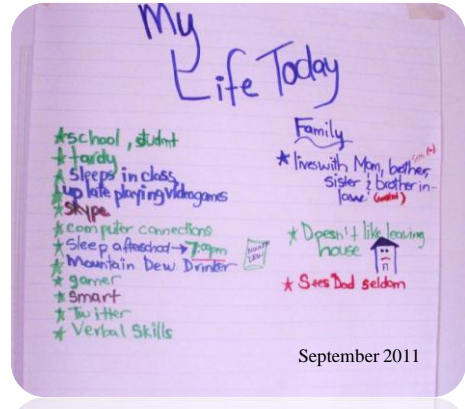 My
Life Today
*school, studnt
*tardy
*Sleeps in class
up late playing Videogames
*Skype
*computer connections
*Sleep afterschool → 7:00pm
*Mountain Dew Drinker
*gamer
*Smart
*Twitter
*Verbal Skills
Family
*lives with Mom, brother,
sister & brother in-
law
*Doesn't like leaving
house
*Sees Dad seldom
September 2011